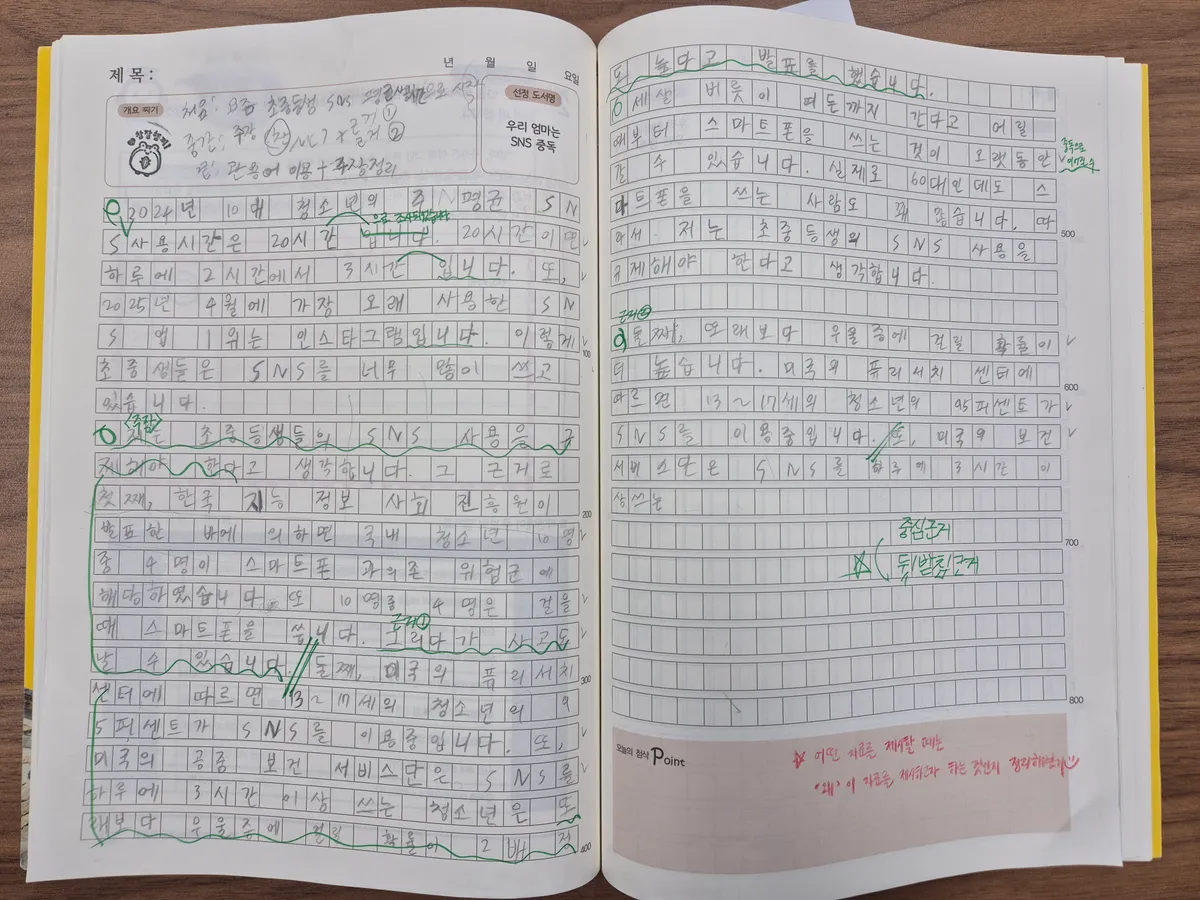 년 월 일 요일
제 목 :
개요 짜기
처음: 요즘 초중등생 SNS 평균사용시간으로 시작
중간: 주장 근거 ①
근거 ②
끝: 관용어 이용 + 주장정리
선정 도서명
우리 엄마는
SNS 중독
2024년 10대 청소년의 주 평균 SN
으로 조사되었습니다
S 사용시간은 20시간 입니다. 20시간이면
하루에 2시간에서 3시간 입니다. 또,
2025년 4월에 가장 오래 사용한 SN
S 앱 1위는 인스타그램입니다. 이렇게
100
초중생들은 SNS를 너무 많이 쓰고
있습니다.
<주장>
저는 초중등생들의 SNS 사용을 규
제해야 한다고 생각합니다. 그 근거로
첫째, 한국 지능 정보 사회 진흥원이
200
발표한 바에 의하면 국내 청소년 10명
중 4명이 스마트폰 과의존 위험군에
해당하였습니다. 또 10명중 4명은 걸을
근거①
때 스마트폰을 씁니다. 그러다가 사고도
날 수 있습니다. 둘째, 미국의 퓨리서치
300
센터에 따르면 13~17세의 청소년의 9
5퍼센트가 SNS를 이용중입니다. 또,
미국의 공중 보건 서비스단은 SNS를
하루에 3시간 이상 쓰는 청소년은 또
래보다 우울증에 걸릴 확률이 2배 정
400
도 높다고 발표를 했습니다.
세살 버릇이 여든까지 간다고 어릴
때부터 스마트폰을 쓰는 것이 오랫동안
중독으로
이어질 수
갈 수 있습니다. 실제로 60대인데도 스
마트폰을 쓰는 사람도 꽤 많습니다. 따
500
라서 저는 초중등생의 SNS 사용을
규제해야 한다고 생각합니다.
근거②
둘째, 또래보다 우울증에 걸릴 확률이
더 높습니다. 미국의 퓨리서치 센터에
600
따르면 13~17세의 청소년의 95퍼센트가
SNS를 이용중입니다. 또, 미국의 보건
서비스단은 SNS를 하루에 3시간 이
상쓰는
700
중심근거
뒷받침근거
800
오늘의 첨삭 Point
☆ 어떤 자료를 제시할 때는
'왜' 이 자료를 제시하고자 하는 것인지 정리해보기